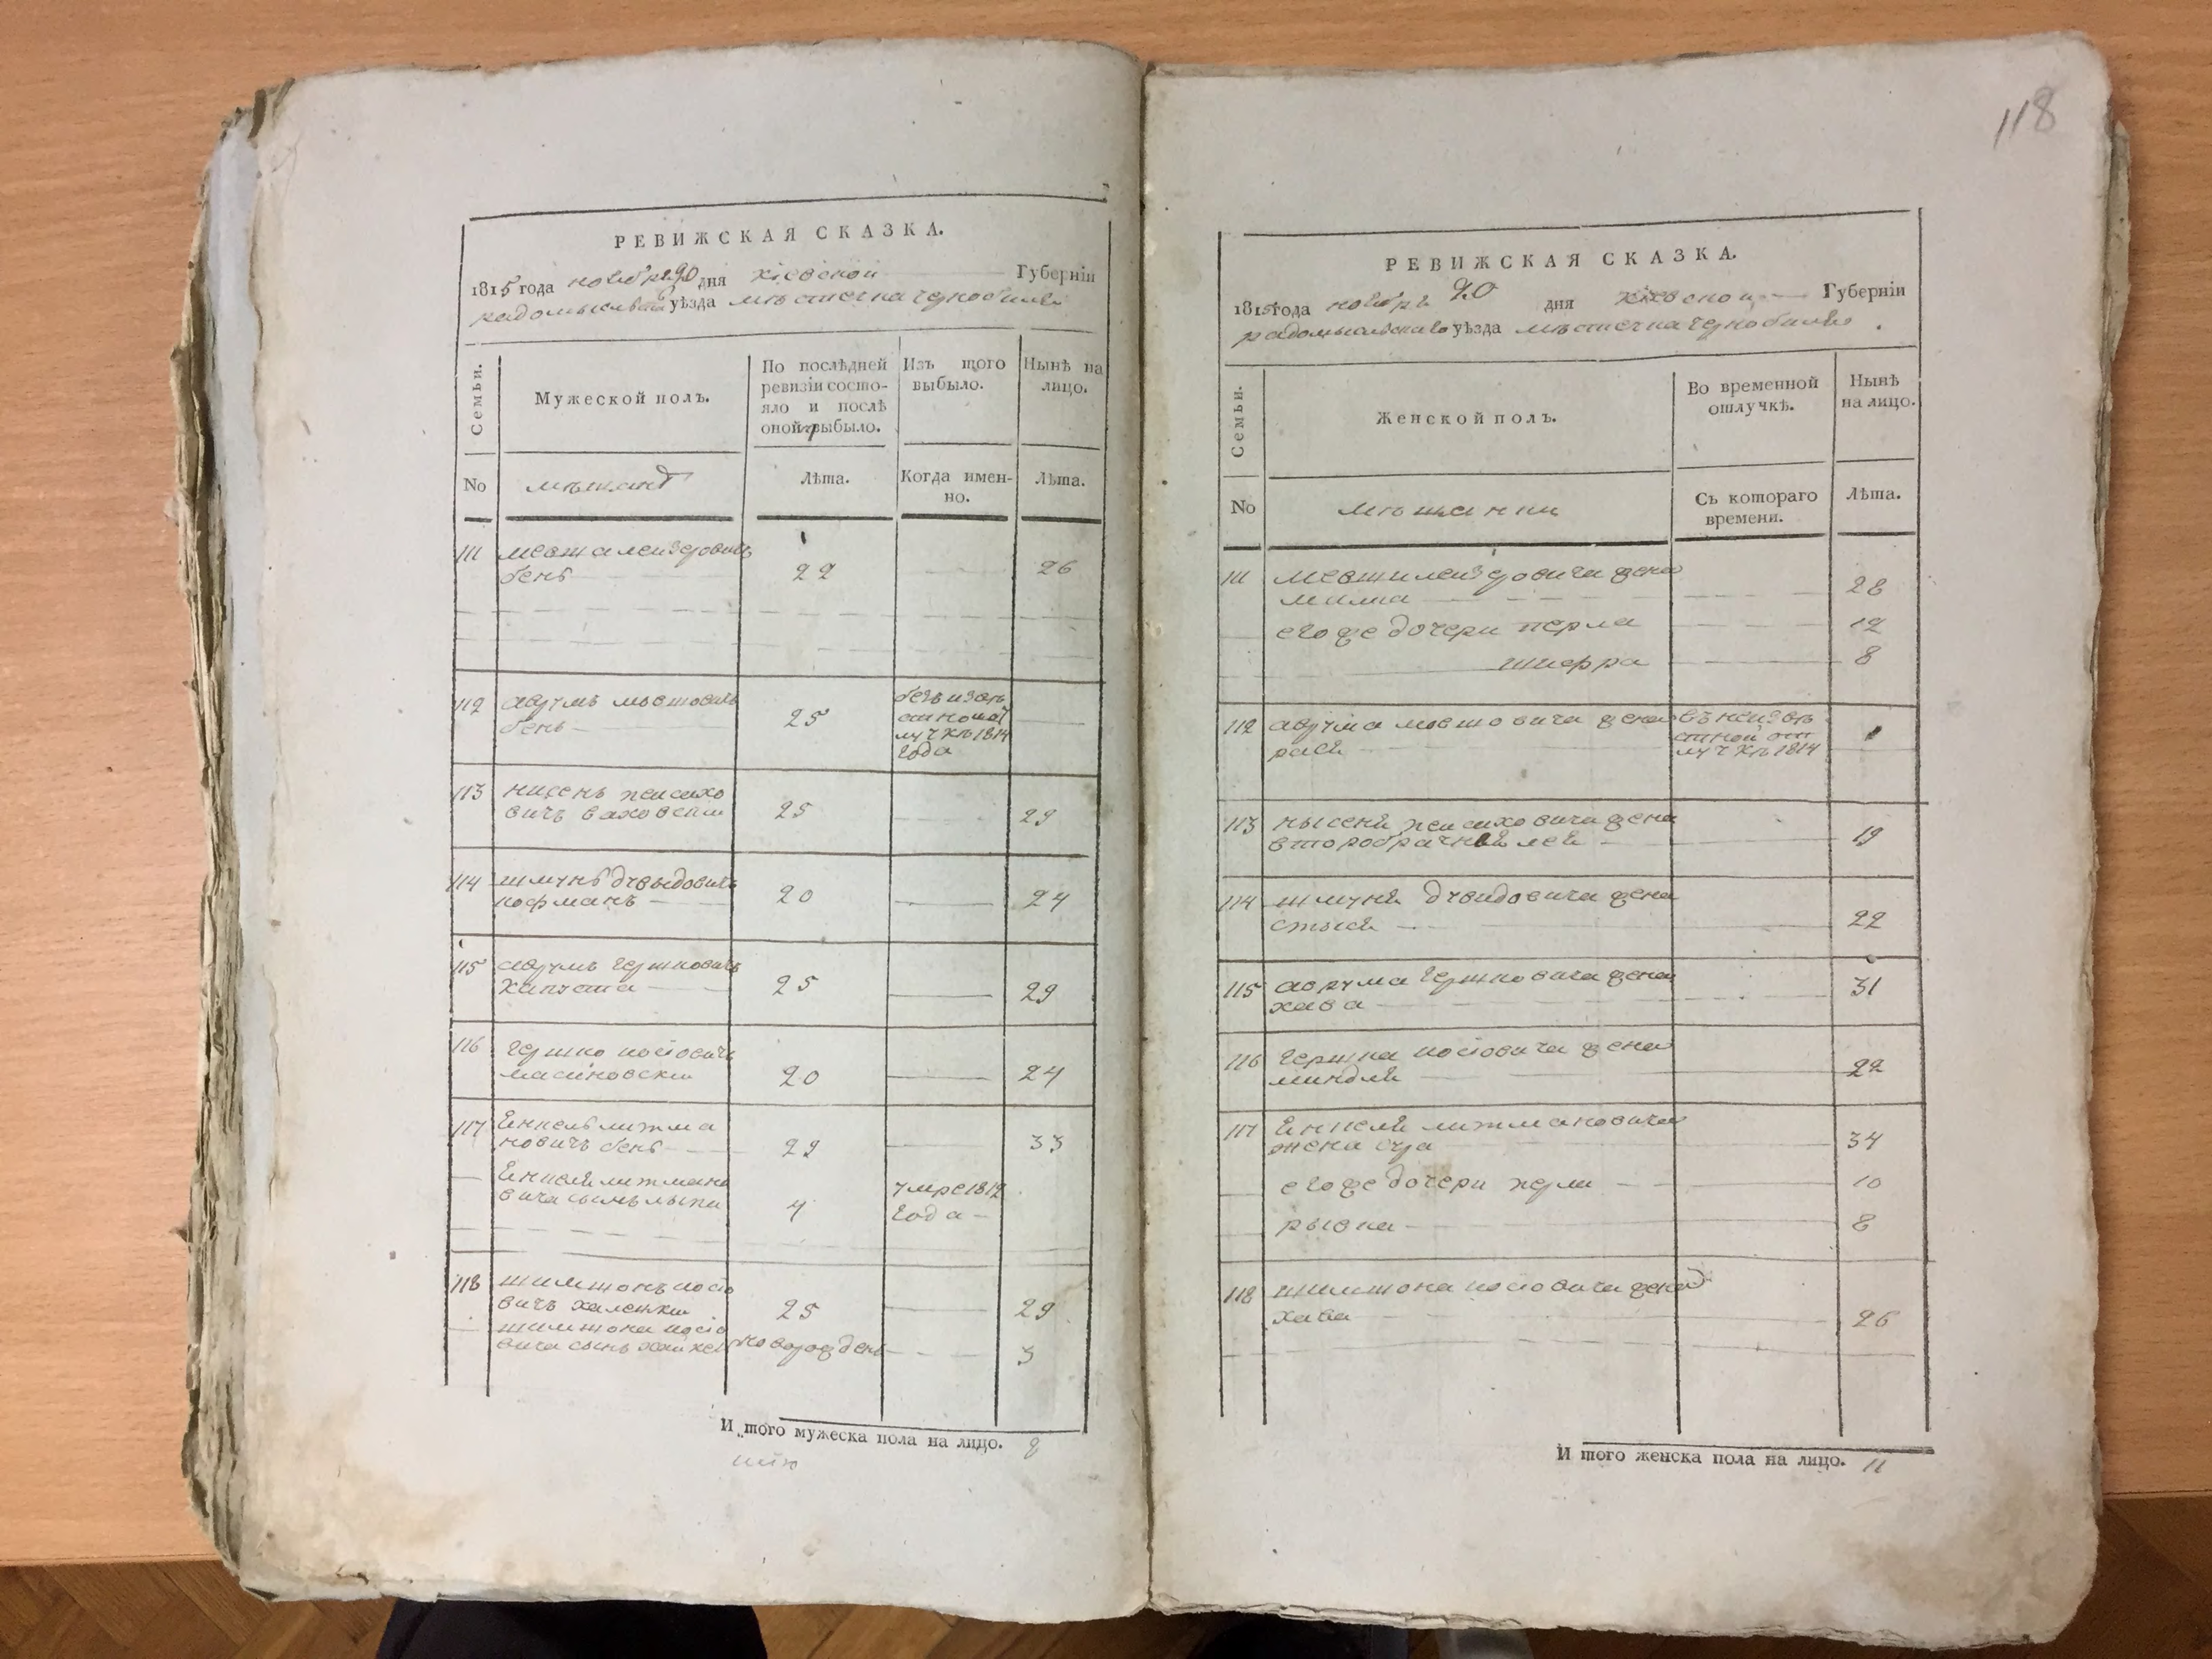 118
РЕВИЖСКАЯ СКАЗКА.
1815 года ноября 20 дня Кіевской Губерніи
радомысльскаго уѣзда мѣстечка чернобиля
Семьи.
Мужеской полъ.
По послѣдней ревизіи состояло и послѣ оной выбыло.
Изъ того выбыло.
Нынѣ на лицо.
No
мѣщанъ
Лѣта.
Когда именно.
Лѣта.
111 мовша леизеровичъ
бенъ 22 26
112 аврумъ мовшовичъ
бенъ 25
безъизвѣ
стной от
лучкѣ 1814
года
113 нисенъ пейсахо
вичъ 25 29
114 шмунъ двыдовичъ
кофманъ 20 24
115 аврумъ гершковичъ
капуста 25 29
116 гершко иосiовичъ
масиновски 20 24
117 Енкель литма
новичъ бенъ 29 33
Енкеля литмано
вича сынъ 4
умре 1812
года
118 шимшонъ иосiо
вичъ каленски 25 29
шимшона иосiо
вича сынъ новорожденъ 3
И того мужеска пола на лицо. 8
РЕВИЖСКАЯ СКАЗКА.
1815 года ноября 20 дня Кіевской Губерніи
радомысльскаго уѣзда мѣстечка чернобиля
Семьи.
Женской полъ.
Во временной отлучкѣ.
Нынѣ на лицо.
No
мѣщанки
Съ котораго времени.
Лѣта.
111 мовши леизеровича жена
милка 28
его же дочери перла 12
шифра 8
112 аврума мовшовича жена
рася
въ неизвѣ
стной от
лучкѣ 1814
113 нысеня пейсаховича жена
второбрачная лея 19
114 шмуня двидовича жена
стыся 22
115 аврума гершковича жена
хава 31
116 гершка иосiовича жена
миндля 22
117 Енкеля литмановича
жена сура 34
его же дочери перля 10
рывка 8
118 шимшона иосiовича жена
хава 26
И того женска пола на лицо. 11